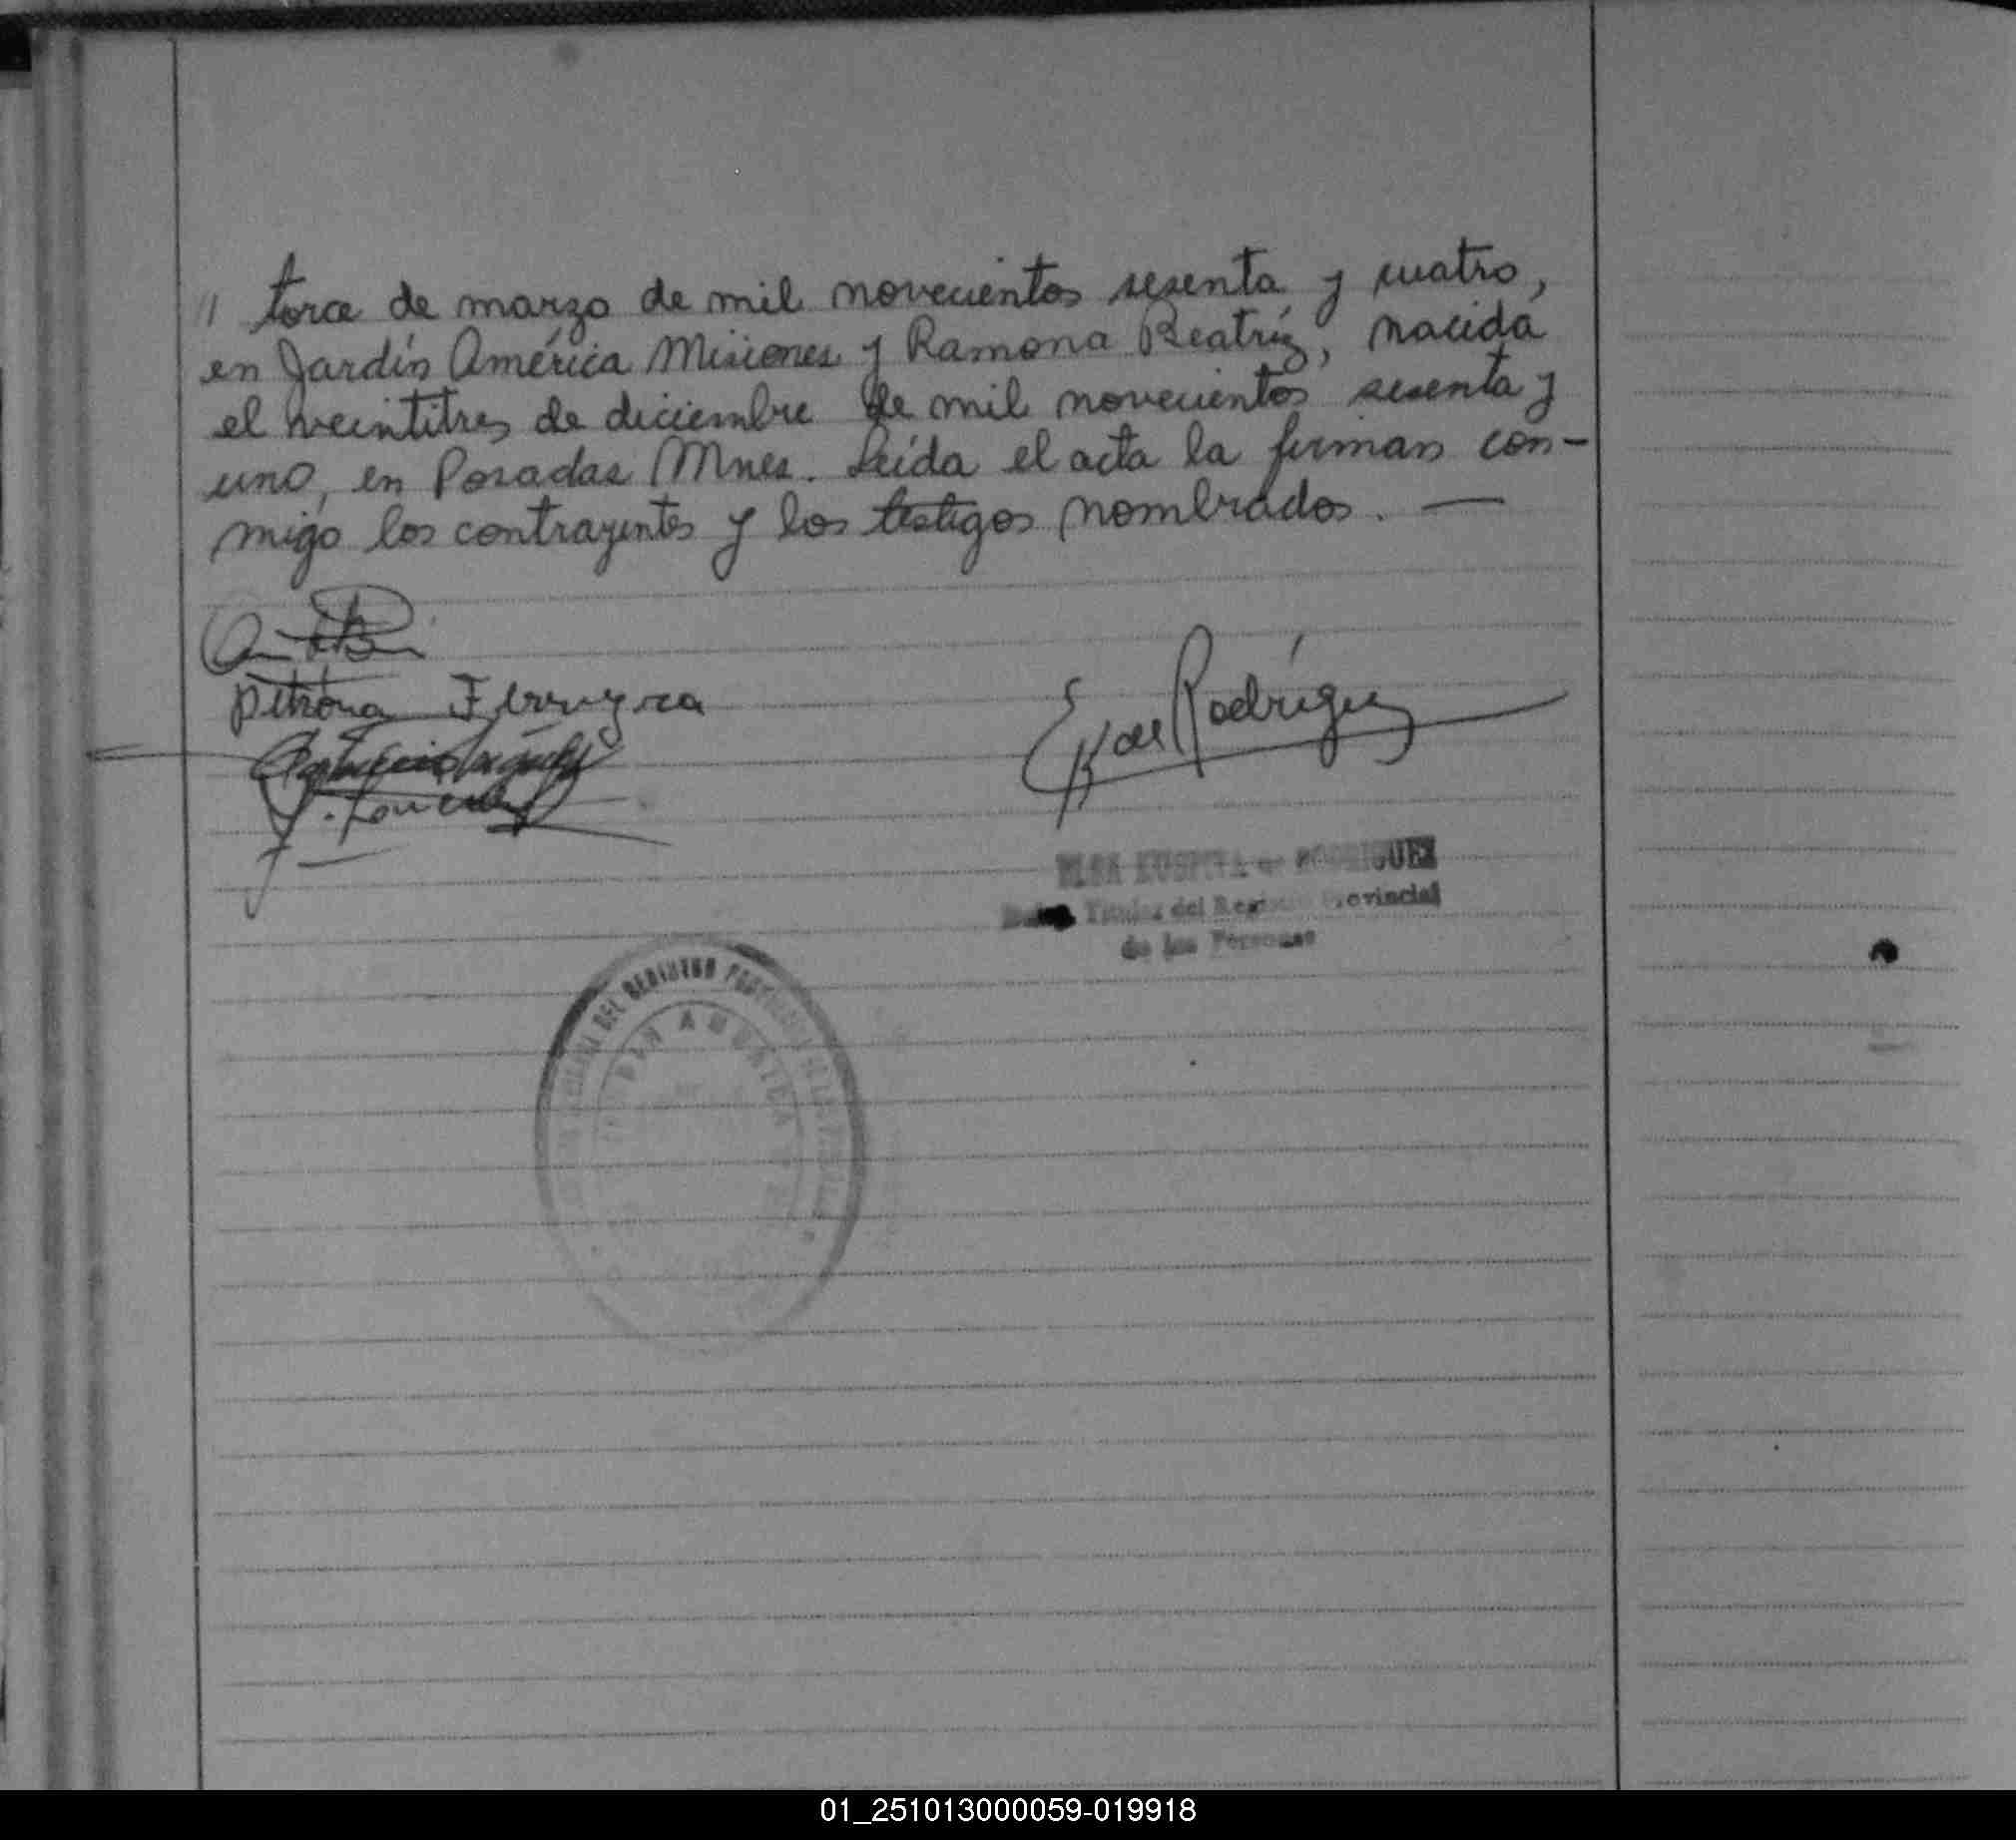 " torce de marzo de mil novecientos sesenta y cuatro,
en Jardín América Misiones y Ramona Beatríz, nacida
el veintitres de diciembre de mil novecientos sesenta y
uno, en Posadas Mnes. Leída el acta la firman con-
migo los contrayentes y los testigos nombrados. —
Petrona Ferreyra
E K de Rodríguez
ELSA KUSPITA de RODRIGUEZ
Titular del Registro Provincial
de las Personas
DEL REGISTRO PROVINCIAL DE LAS PERSONAS
JARDIN AMERICA
01_251013000059-019918